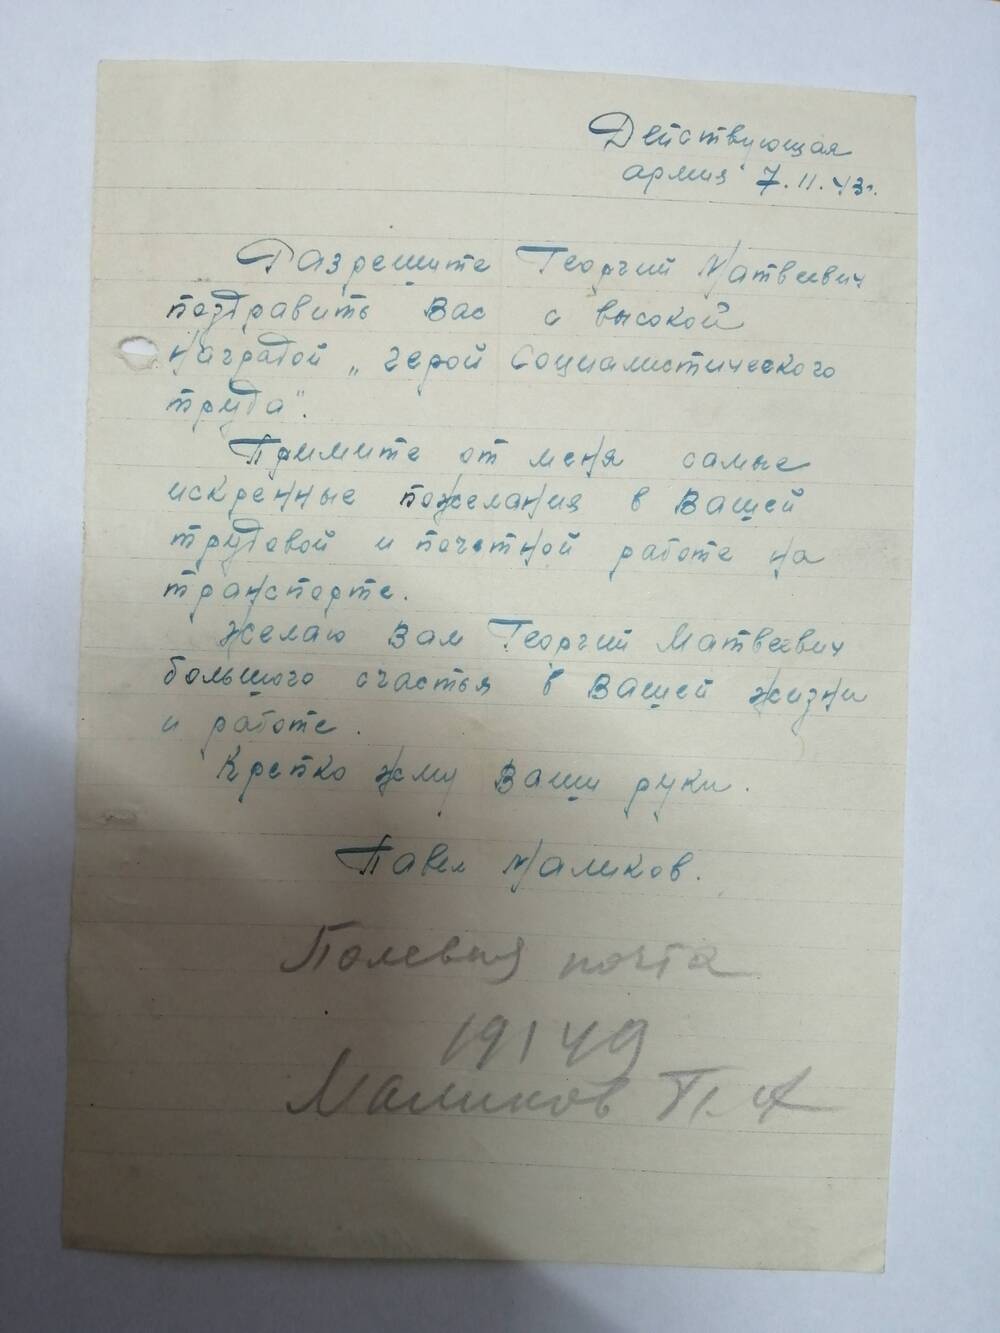 Действующая
армия 7.11.43г.
Разрешите Георгий Матвеевич
поздравить Вас с высокой
наградой „герой Социалистического
труда".
Примите от меня самые
искренные пожелания в Вашей
трудовой и почетной работе на
транспорте.
Желаю Вам Георгий Матвеевич
большого счастья в Вашей жизни
и работе.
Крепко жму Ваши руки.
Павел Маликов.
Полевая почта
19149
Маликов П.А